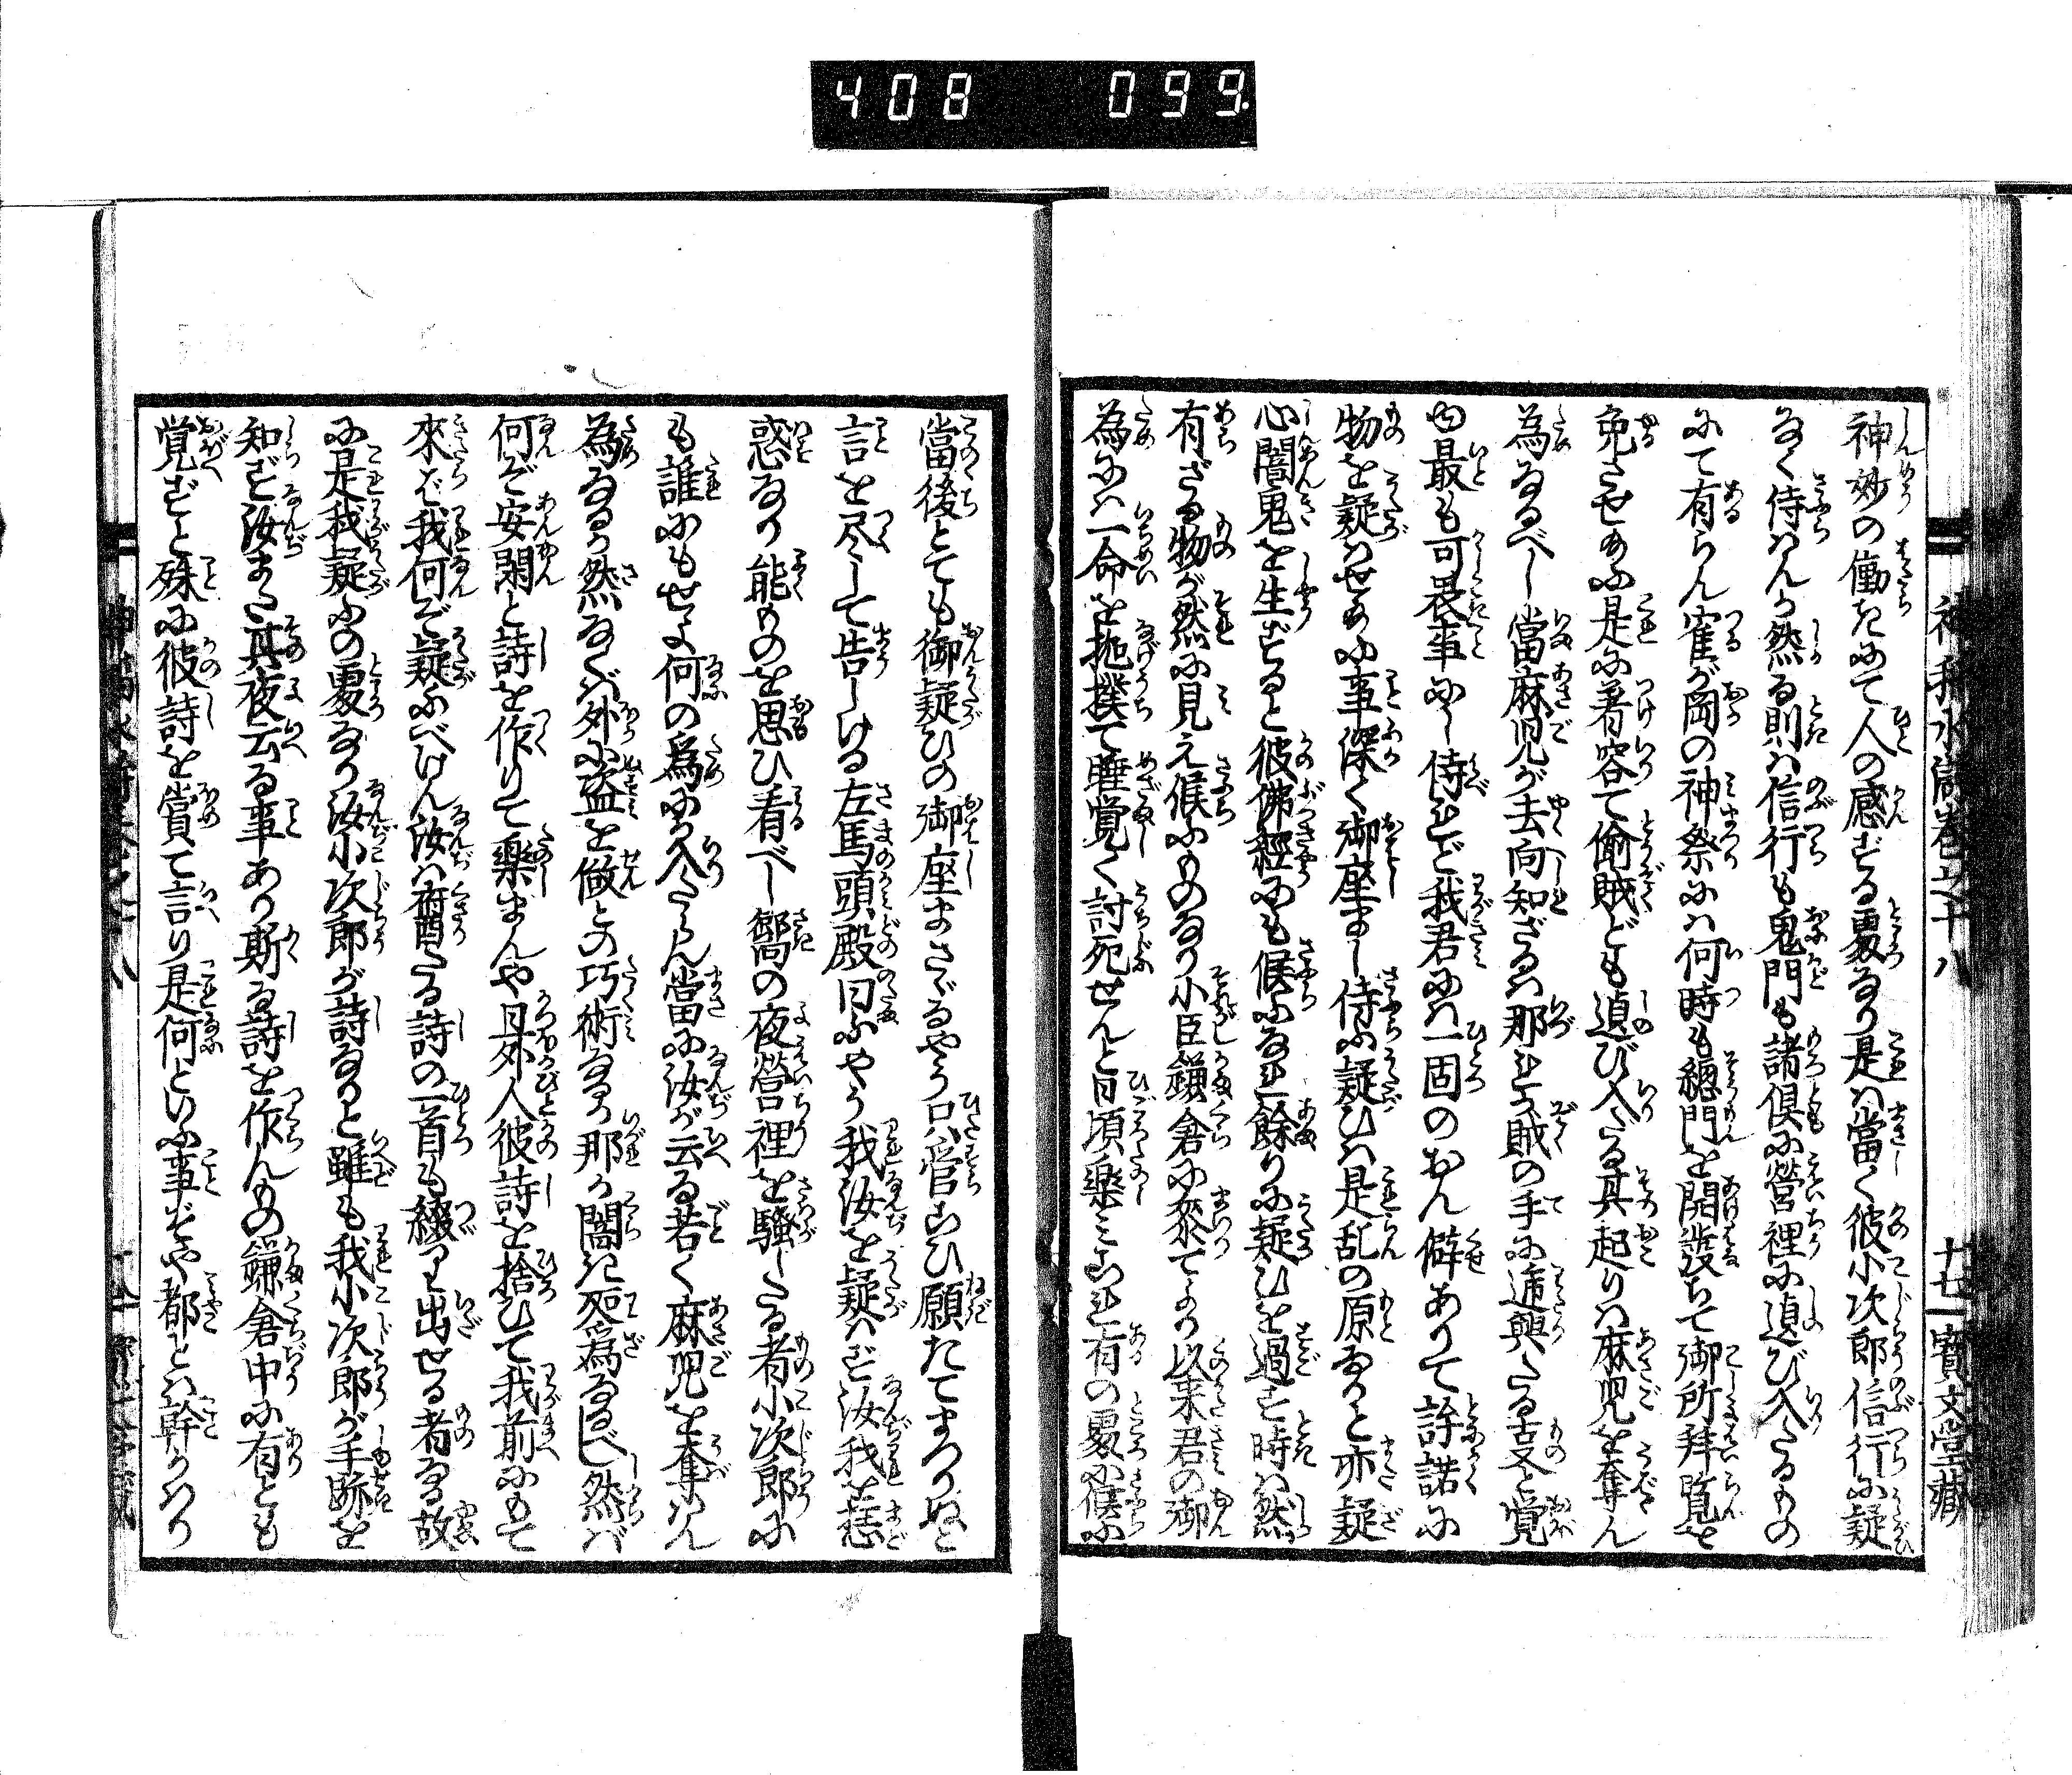 408 099
神妙の働きにて人の感ずる処なり是は當く彼小次郎信行に疑
なく侍はんか然る則は信行も鬼門も諸倶に營裡に遉び入たるもの
にて有らん寉が岡の神祭には何時も總門を開發ちて御所拜覧を
免させ給ふ是に着容て偷賊ども遉び入たる其起りは麻児を奪ん
為なるべし當麻児が去向知ざるは那れか賊の手に逓與たる者と覚
由最も可畏事にし侍れど我君には一固のおん僻ありて許諾に
物を疑はせ給ふ事深く御座まし侍ふ疑ひは是乱の原なりと亦疑
心闇鬼を生ずると彼佛經にも候ふなれ餘りに疑ひを過す時は然
有ざる物が然に見え候ふものなり小臣鎌倉に参てより以来君の御
為には一命を抛撲て睡覚く討死せんと日頃樂みこれ有の処に候ふ
當後とても御疑ひの御座まさざるやう只管こひ願たてまつりぬと
言を尽して告しける左馬頭殿曰ふやう我汝を疑はず汝我を
惑なり能ものを思ひ看べし嚮の夜營裡を騒したる者小次郎に
も誰にもせよ何の為に入たらん當に汝が云る若く麻児を奪はん
為なるか然なくば外に盗を做んとの巧術なるか那れか闇き所為なるべし然ば
何ぞ安閑と詩を作りて樂まんや且外人彼詩を捨ひて我前にもて
來ば我何ぞ疑ふべけん汝は醉たる詩の一首も綴り出せる者なる故
に是我疑ふの処なり汝小次郎が詩なりと雖も我小次郎が手跡を
知ず汝また其夜云る事あり斯る詩を作んもの鎌倉中に有とも
覚ずと殊に彼詩を賞て言り是何といふ事ぞや都とは幹かはり
神稲水滸傳巻之十八
十廿一寶文堂藏